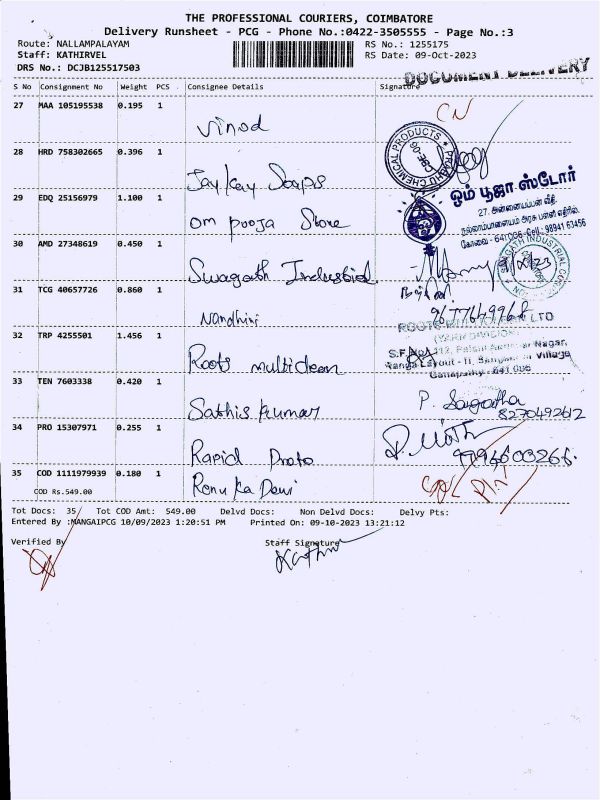 THE PROFESSIONAL COURIERS, COIMBATORE
Delivery Runsheet - PCG - Phone No.:0422-3505555 - Page No.:3
Route: NALLAMPALAYAM RS No.: 1255175
Staff: KATHIRVEL RS Date: 09-Oct-2023
DRS No.: DCJB125517503
DOCUMENT DELIVERY
S No Consignment No Weight PCS Consignee Details Signature
27 MAA 105195538 0.195 1 Vinod CN
28 HRD 758302665 0.396 1 Jay Kay Soaps
PRABHU CHEMICAL PRODUCTS
CBE-06
29 EDQ 25156979 1.100 1 om pooja Store
ஓம் பூஜா ஸ்டோர்
27, அன்னையப்பன் வீதி,
நல்லாம்பாளையம் அரசு பள்ளி எதிரில்,
கோவை - 641006 Cell : 98941 63456
30 AMD 27348619 0.450 1 Swagath Industrial
31 TCG 40657726 0.860 1 Nandhini
9677649968
32 TRP 4255501 1.456 1 Roots multiclean
ROOTS LTD
(YARN DIVISION)
S.F.No. 112, Nagar,
Layout - II, Village
Ganapathy - 641 006
33 TEN 7603338 0.420 1 Sathis kumar P. Sagatha
8270492612
34 PRO 15307971 0.255 1 Rapid Proto
9994603266
35 COD 1111979939 0.180 1 Renu ka Devi
COD Rs.549.00
Tot Docs: 35 Tot COD Amt: 549.00 Delvd Docs: Non Delvd Docs: Delvy Pts:
Entered By :MANGAIPCG 10/09/2023 1:20:51 PM Printed On: 09-10-2023 13:21:12
Verified By Staff Signature